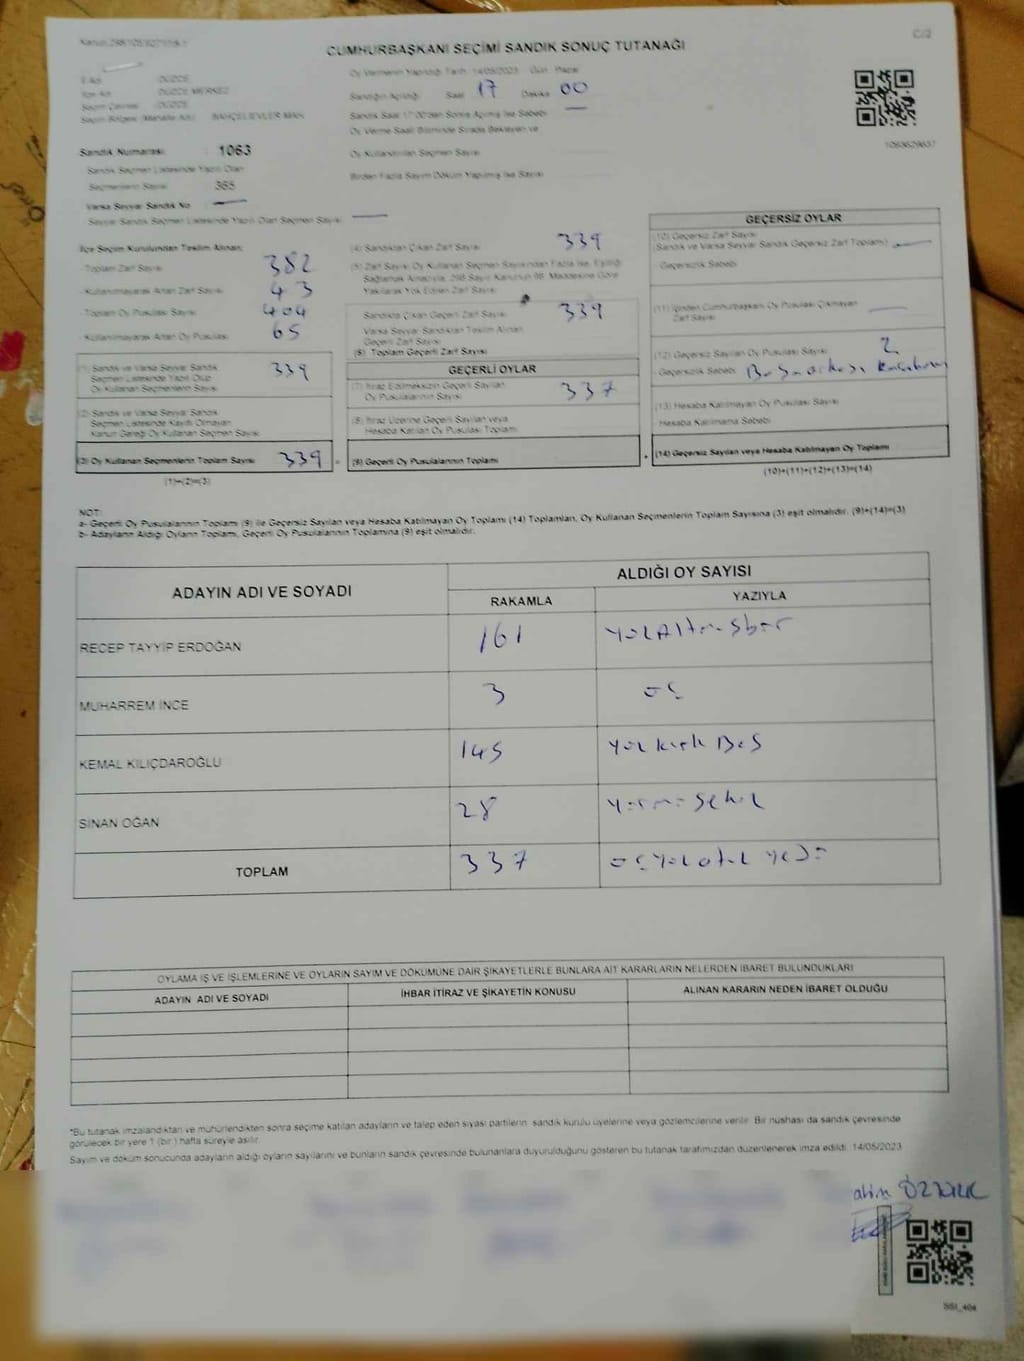 C/2
CUMHURBAŞKANI SEÇİMİ SANDIK SONUÇ TUTANAĞI
Oy Vermenin Yapıldığı Tarih: 14/05/2023 Gün: Pazar
İl Adı : DÜZCE
İlçe Adı : DÜZCE MERKEZ
Seçim Çevresi : DÜZCE
Seçim Bölgesi (Mahalle Adı) : BAHÇELİEVLER MAH.
Sandığın Açıldığı Saat 17 Dakika 00
Sandık Saat 17:00'den Sonra Açılmış İse Sebebi
Oy Verme Saati Bitiminde Sırada Bekleyen ve
Oy Kullandırılan Seçmen Sayısı
Birden Fazla Sayım Döküm Yapılmış İse Sayısı
Sandık Numarası : 1063
Sandık Seçmen Listesinde Yazılı Olan
Seçmenlerin Sayısı 365
Varsa Seyyar Sandık No
Seyyar Sandık Seçmen Listesinde Yazılı Olan Seçmen Sayısı
İlçe Seçim Kurulundan Teslim Alınan:
- Toplam Zarf Sayısı 382
- Kullanılmayarak Artan Zarf Sayısı 43
- Toplam Oy Pusulası Sayısı 404
- Kullanılmayarak Artan Oy Pusulası 65
(1) Sandık ve Varsa Seyyar Sandık
Seçmen Listesinde Yazılı Olup
Oy Kullanan Seçmenlerin Sayısı 339
(2) Sandık ve Varsa Seyyar Sandık
Seçmen Listesinde Kayıtlı Olmayan
Kanun Gereği Oy Kullanan Seçmen Sayısı
(3) Oy Kullanan Seçmenlerin Toplam Sayısı 339
(1)+(2)=(3)
(4) Sandıktan Çıkan Zarf Sayısı 339
(5) Zarf Sayısı Oy Kullanan Seçmen Sayısından Fazla İse, Eşitliği
Sağlamak Amacıyla, 298 Sayılı Kanunun 98. Maddesine Göre
Yakılarak Yok Edilen Zarf Sayısı
Sandıkta Çıkan Geçerli Zarf Sayısı 339
Varsa Seyyar Sandıktan Teslim Alınan
Geçerli Zarf Sayısı
(6) Toplam Geçerli Zarf Sayısı
GEÇERLİ OYLAR
(7) İtiraz Edilmeksizin Geçerli Sayılan
Oy Pusulalarının Sayısı 337
(8) İtiraz Üzerine Geçerli Sayılan veya
Hesaba Katılan Oy Pusulası Toplamı
(9) Geçerli Oy Pusulalarının Toplamı
GEÇERSİZ OYLAR
(10) Geçersiz Zarf Sayısı
(Sandık ve Varsa Seyyar Sandık Geçersiz Zarf Toplamı)
- Geçersizlik Sebebi
(11) İçinden Cumhurbaşkanı Oy Pusulası Çıkmayan
Zarf Sayısı
(12) Geçersiz Sayılan Oy Pusulası Sayısı 2
- Geçersizlik Sebebi
(13) Hesaba Katılmayan Oy Pusulası Sayısı
- Hesaba Katılmama Sebebi
(14) Geçersiz Sayılan veya Hesaba Katılmayan Oy Toplamı
(10)+(11)+(12)+(13)=(14)
NOT:
a- Geçerli Oy Pusulalarının Toplamı (9) ile Geçersiz Sayılan veya Hesaba Katılmayan Oy Toplamı (14) Toplamları, Oy Kullanan Seçmenlerin Toplam Sayısına (3) eşit olmalıdır. (9)+(14)=(3)
b- Adayların Aldığı Oyların Toplamı, Geçerli Oy Pusulalarının Toplamına (9) eşit olmalıdır.
ADAYIN ADI VE SOYADI
ALDIĞI OY SAYISI
RAKAMLA YAZIYLA
RECEP TAYYİP ERDOĞAN 161 YüzAltmışbir
MUHARREM İNCE 3 üç
KEMAL KILIÇDAROĞLU 145 Yüz kırk Beş
SİNAN OĞAN 28 Yirmi Sekiz
TOPLAM 337 üçyüz otuz yedi
OYLAMA İŞ VE İŞLEMLERİNE VE OYLARIN SAYIM VE DÖKÜMÜNE DAİR ŞİKAYETLERLE BUNLARA AİT KARARLARIN NELERDEN İBARET BULUNDUKLARI
ADAYIN ADI VE SOYADI İHBAR İTİRAZ VE ŞİKAYETİN KONUSU ALINAN KARARIN NEDEN İBARET OLDUĞU
*Bu tutanak imzalandıktan ve mühürlendikten sonra seçime katılan adayların ve talep eden siyasi partilerin sandık kurulu üyelerine veya gözlemcilerine verilir. Bir nüshası da sandık çevresinde
görülecek bir yere 1 (bir ) hafta süreyle asılır.
Sayım ve döküm sonucunda adayların aldığı oyların sayılarını ve bunların sandık çevresinde bulunanlara duyurulduğunu gösteren bu tutanak tarafımızdan düzenlenerek imza edildi. 14/05/2023
SSI_404